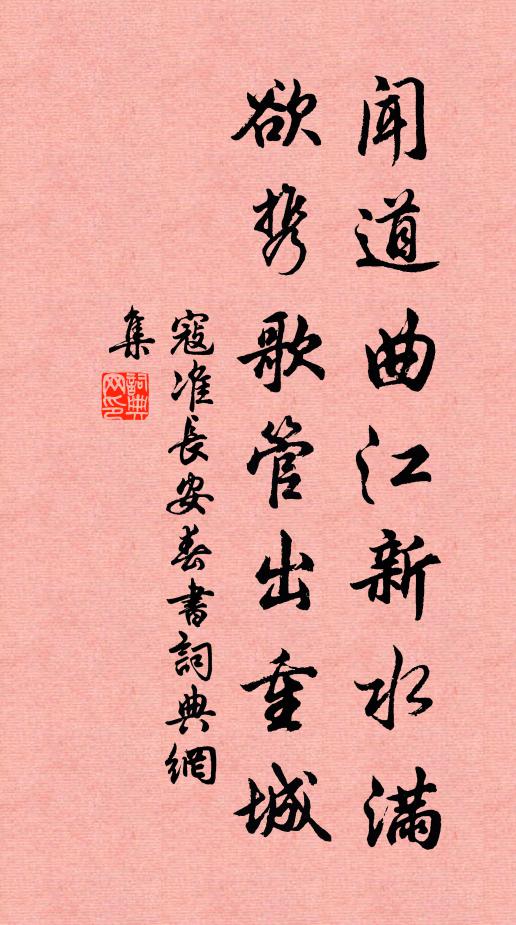 闻道曲江新水满
欲携歌管出重城
寇准长安春书詞典網
集
詞典网印